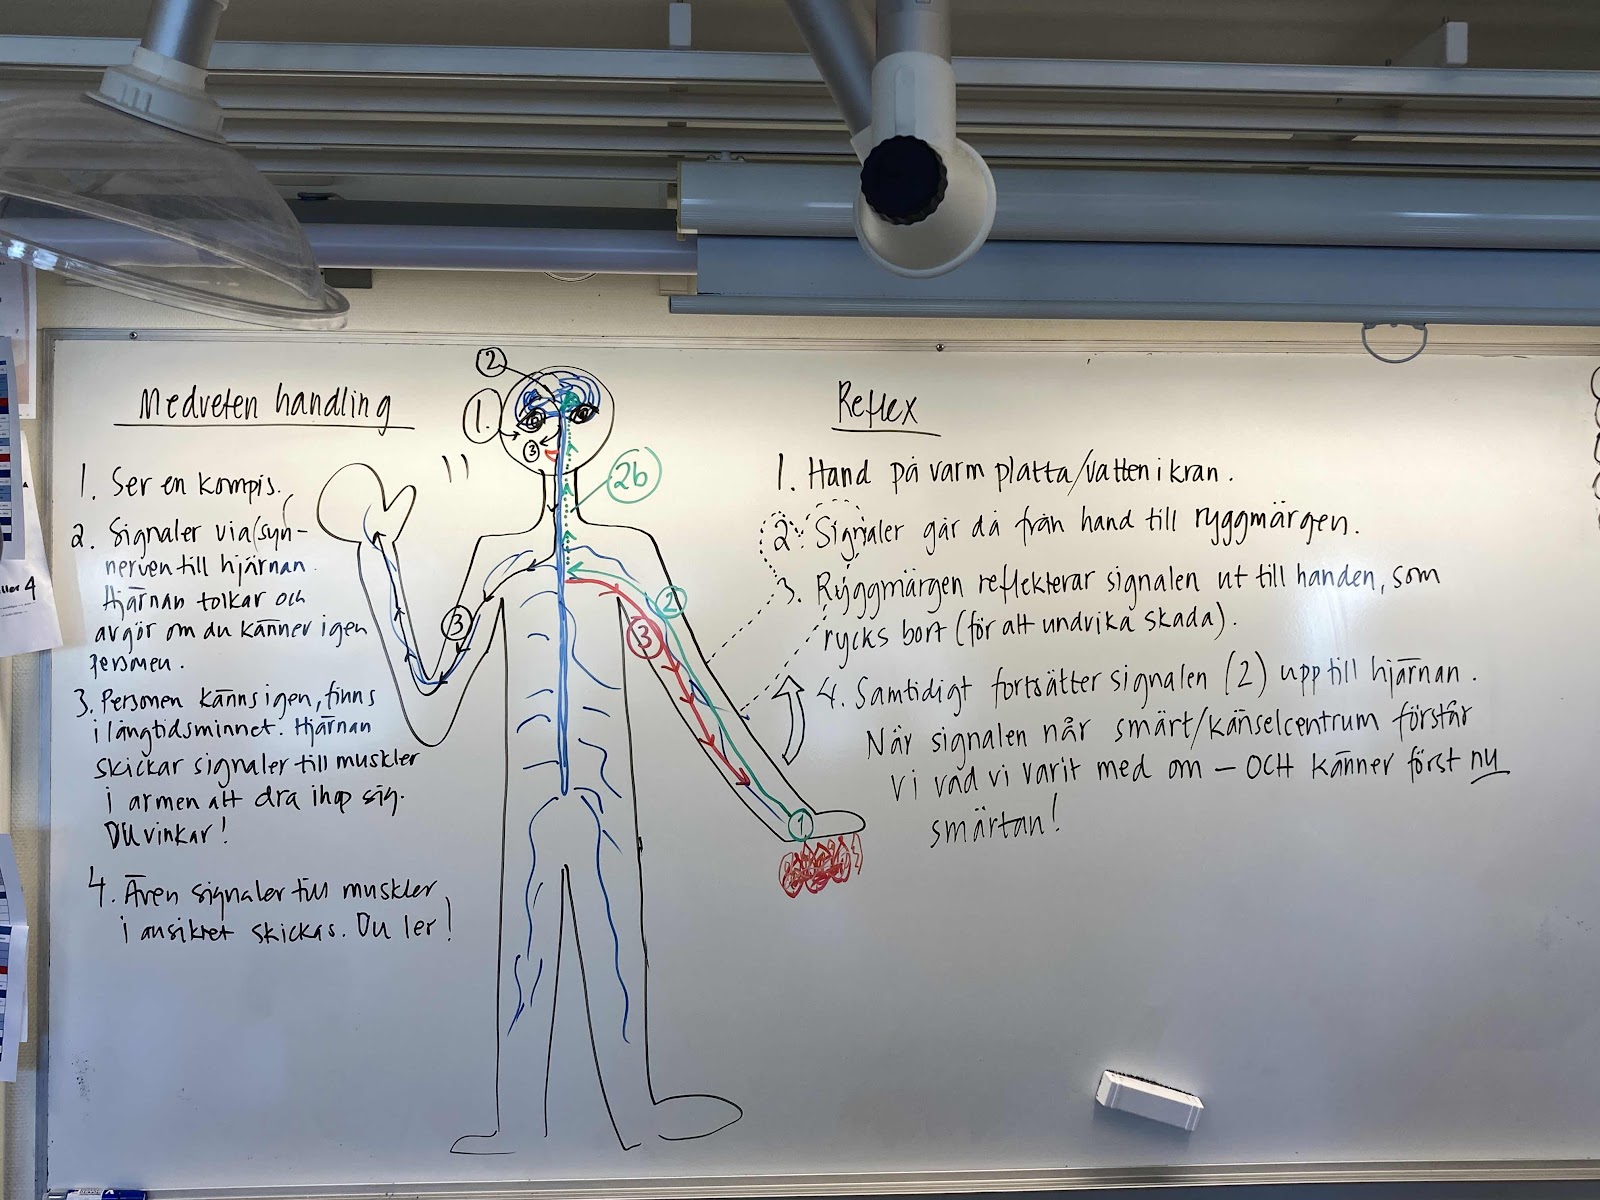 Medveten handling
1. Ser en kompis.
2. Signaler via (syn-
nerven till hjärnan.
Hjärnan tolkar och
avgör om du känner igen
personen.
3. Personen känns igen, finns
i långtidsminnet. Hjärnan
skickar signaler till muskler
i armen att dra ihop sig.
DU vinkar!
4. Även signaler till muskler
i ansiktet skickas. Du ler!
2
1.
3
2b
3
2
3
1
Reflex
1. Hand på varm platta/vatten i kran.
2. Signaler går då från hand till ryggmärgen.
3. Ryggmärgen reflekterar signalen ut till handen, som
rycks bort (för att undvika skada).
4. Samtidigt fortsätter signalen (2) upp till hjärnan.
När signalen når smärt/känselcentrum förstår
vi vad vi varit med om – OCH känner först nu
smärtan!